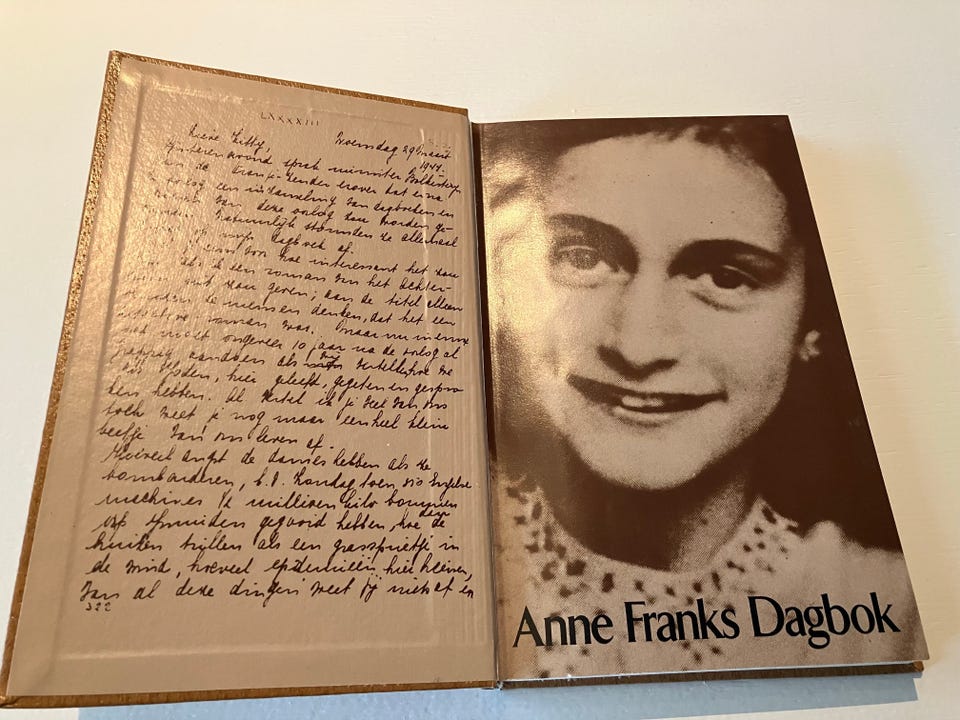 LXXXXIII
Lieve Kitty, Woensdag 29 Maart
1944.
Gisterenavond sprak minister Bolkesteyn
aan de Oranje-zender erover dat er na
de oorlog een inzameling van dagboeken en
van deze oorlog zou worden ge-
Natuurlijk stormden ze allemaal
mijn dagboek af.
hoe interessant het zou
als ik een roman van het Achter-
uit zou geven; aan de titel alleen
de mensen denken, dat het een
roman was. Maar nu in ernst
moet ongeveer 10 jaar na de oorlog al
grappig aandoen als wij vertellen hoe we
als Joden, hier geleefd, gegeten en gespro
ken hebben. Al vertel ik je veel van ons
toch weet je nog maar een heel klein
beetje van ons leven af.
Hoeveel angst de dames hebben als ze
bombarderen, b.v. Zondag toen 350 Engelse
machines ½ millioen kilo bommen
op Ijmuiden gegooid hebben, hoe dan de
huizen trillen als een grassprietje in
de wind, hoeveel epidemieën hier heersen,
van al deze dingen weet jij niets af en
322
Anne Franks Dagbok